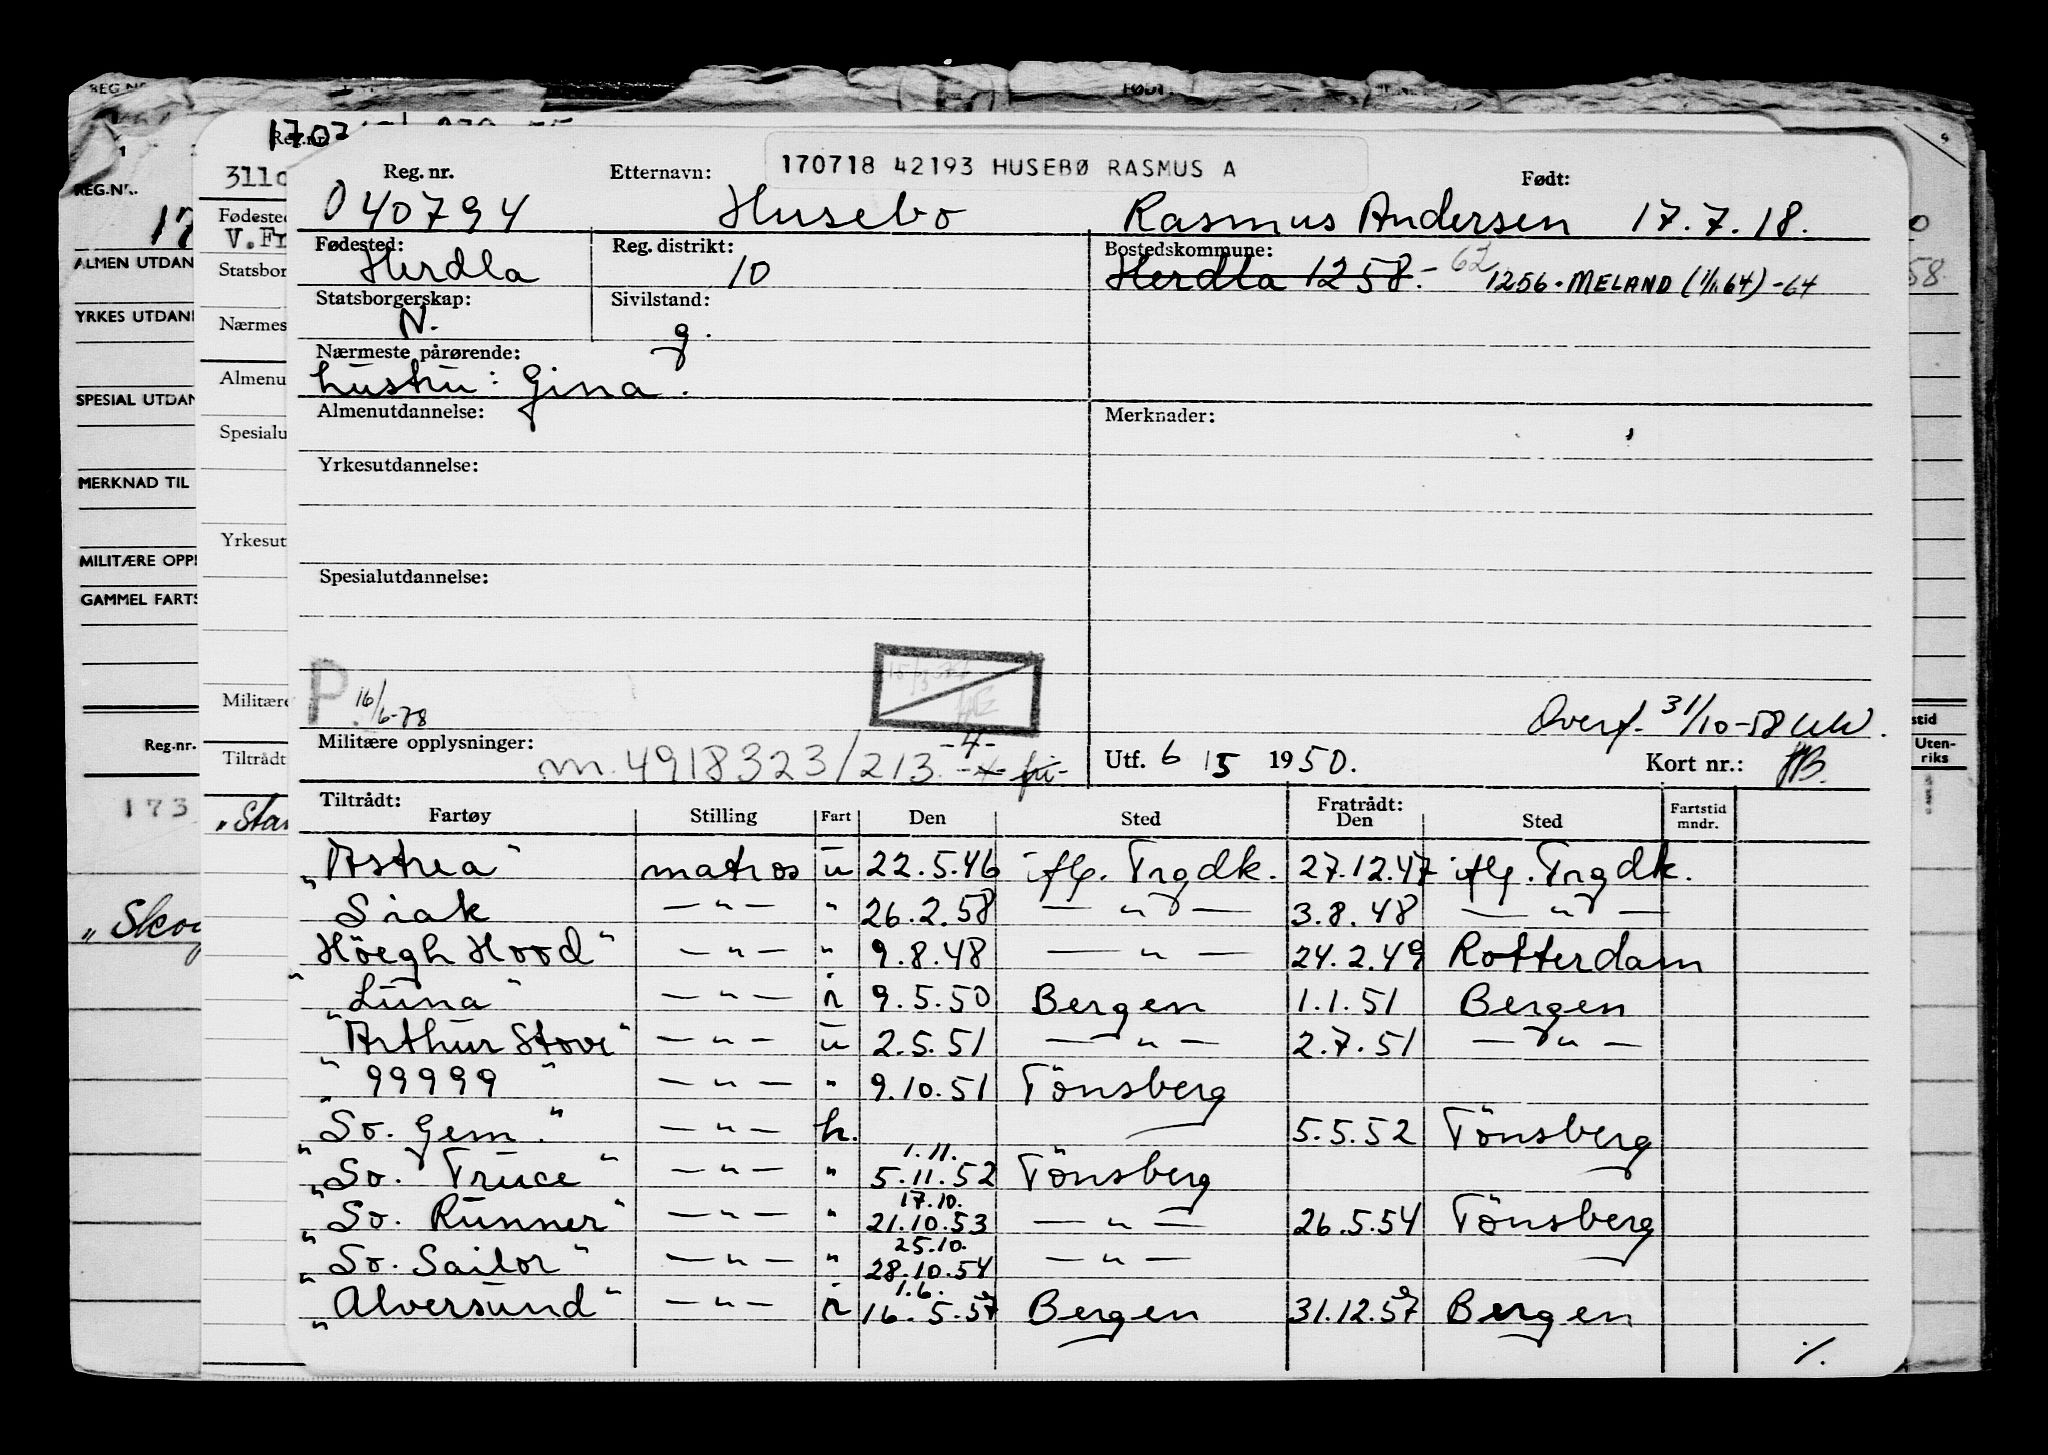 BEG.NR.
FØDT
1
9
1707
Reg.nr.
170718 42193 HUSEBØ RASMUS A
REG.NR.
3110
Reg. nr. Etternavn: Født:
17
Fødested
040794 Husebø Rasmus Andersen 17.7.18.
V. Fr
Fødested: Reg. distrikt: Bostedskommune:
ALMEN UTDAN
Statsbor
Herdla 10 Herdla 1258.- 62 1256-MELAND (1/1.64) -64
58
Statsborgerskap: Sivilstand:
YRKES UTDAN
Nærmes
N. g.
Nærmeste pårørende:
Almenu
hustru: Gina.
SPESIAL UTDAN
Almenutdannelse: Merknader:
Spesialu
Yrkesutdannelse:
MERKNAD TIL
Yrkesut
MILITÆRE OPP
Spesialutdannelse:
GAMMEL FARTS
Militære
P. 16/6-78
Overf. 31/10-58
Reg.nr.
Militære opplysninger:
-4-
m. 4918323/213.
Utf. 6 15 1950. Kort nr.:
stid
Uten-
riks
Tiltrådt
173
"Star
"Skog
Tiltrådt: Fratrådt:
Fartøy Stilling Fart Den Sted Den Sted Fartstid mndr.
"Astrea" matros u 22.5.46 ifg. Trgdk. 27.12.47 ifg. Trgdk.
Siak — " — " 26.2.58 — " — 3.8.48 — " —
Höegh Hood" — " — " 9.8.48 — " — 24.2.49 Rotterdam
"Luna" — " — i 9.5.50 Bergen 1.1.51 Bergen
"Arthur Stove" — " — u 2.5.51 — " — 2.7.51 — " —
"99999" — " — " 9.10.51 Tönsberg
"So. Gem." — " — h. 5.5.52 Tönsberg
1.11.
"So. Truce" — " — " 5.11.52 Tönsberg
17.10.
"So. Runner" — " — " 21.10.53 — " — 26.5.54 Tönsberg
25.10.
"So. Sailor" — " — " 28.10.54 — " —
1.6.
"Alversund" — " — i 16.5.57 Bergen 31.12.57 Bergen
%.